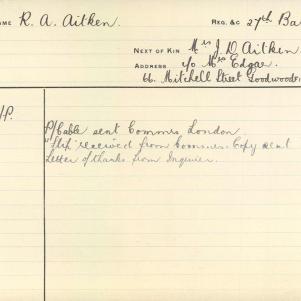 NAME R. A. Aitken. REG. &C 27th Ba
NEXT OF KIN Mrs J. D. Aitken.
ADDRESS c/o Mrs Edgar.
66. Mitchell Street Goodwood
P/Cable sent Commrs London
"Slip" received from Commrs. Copy sent
Letter of thanks from Inquirer.